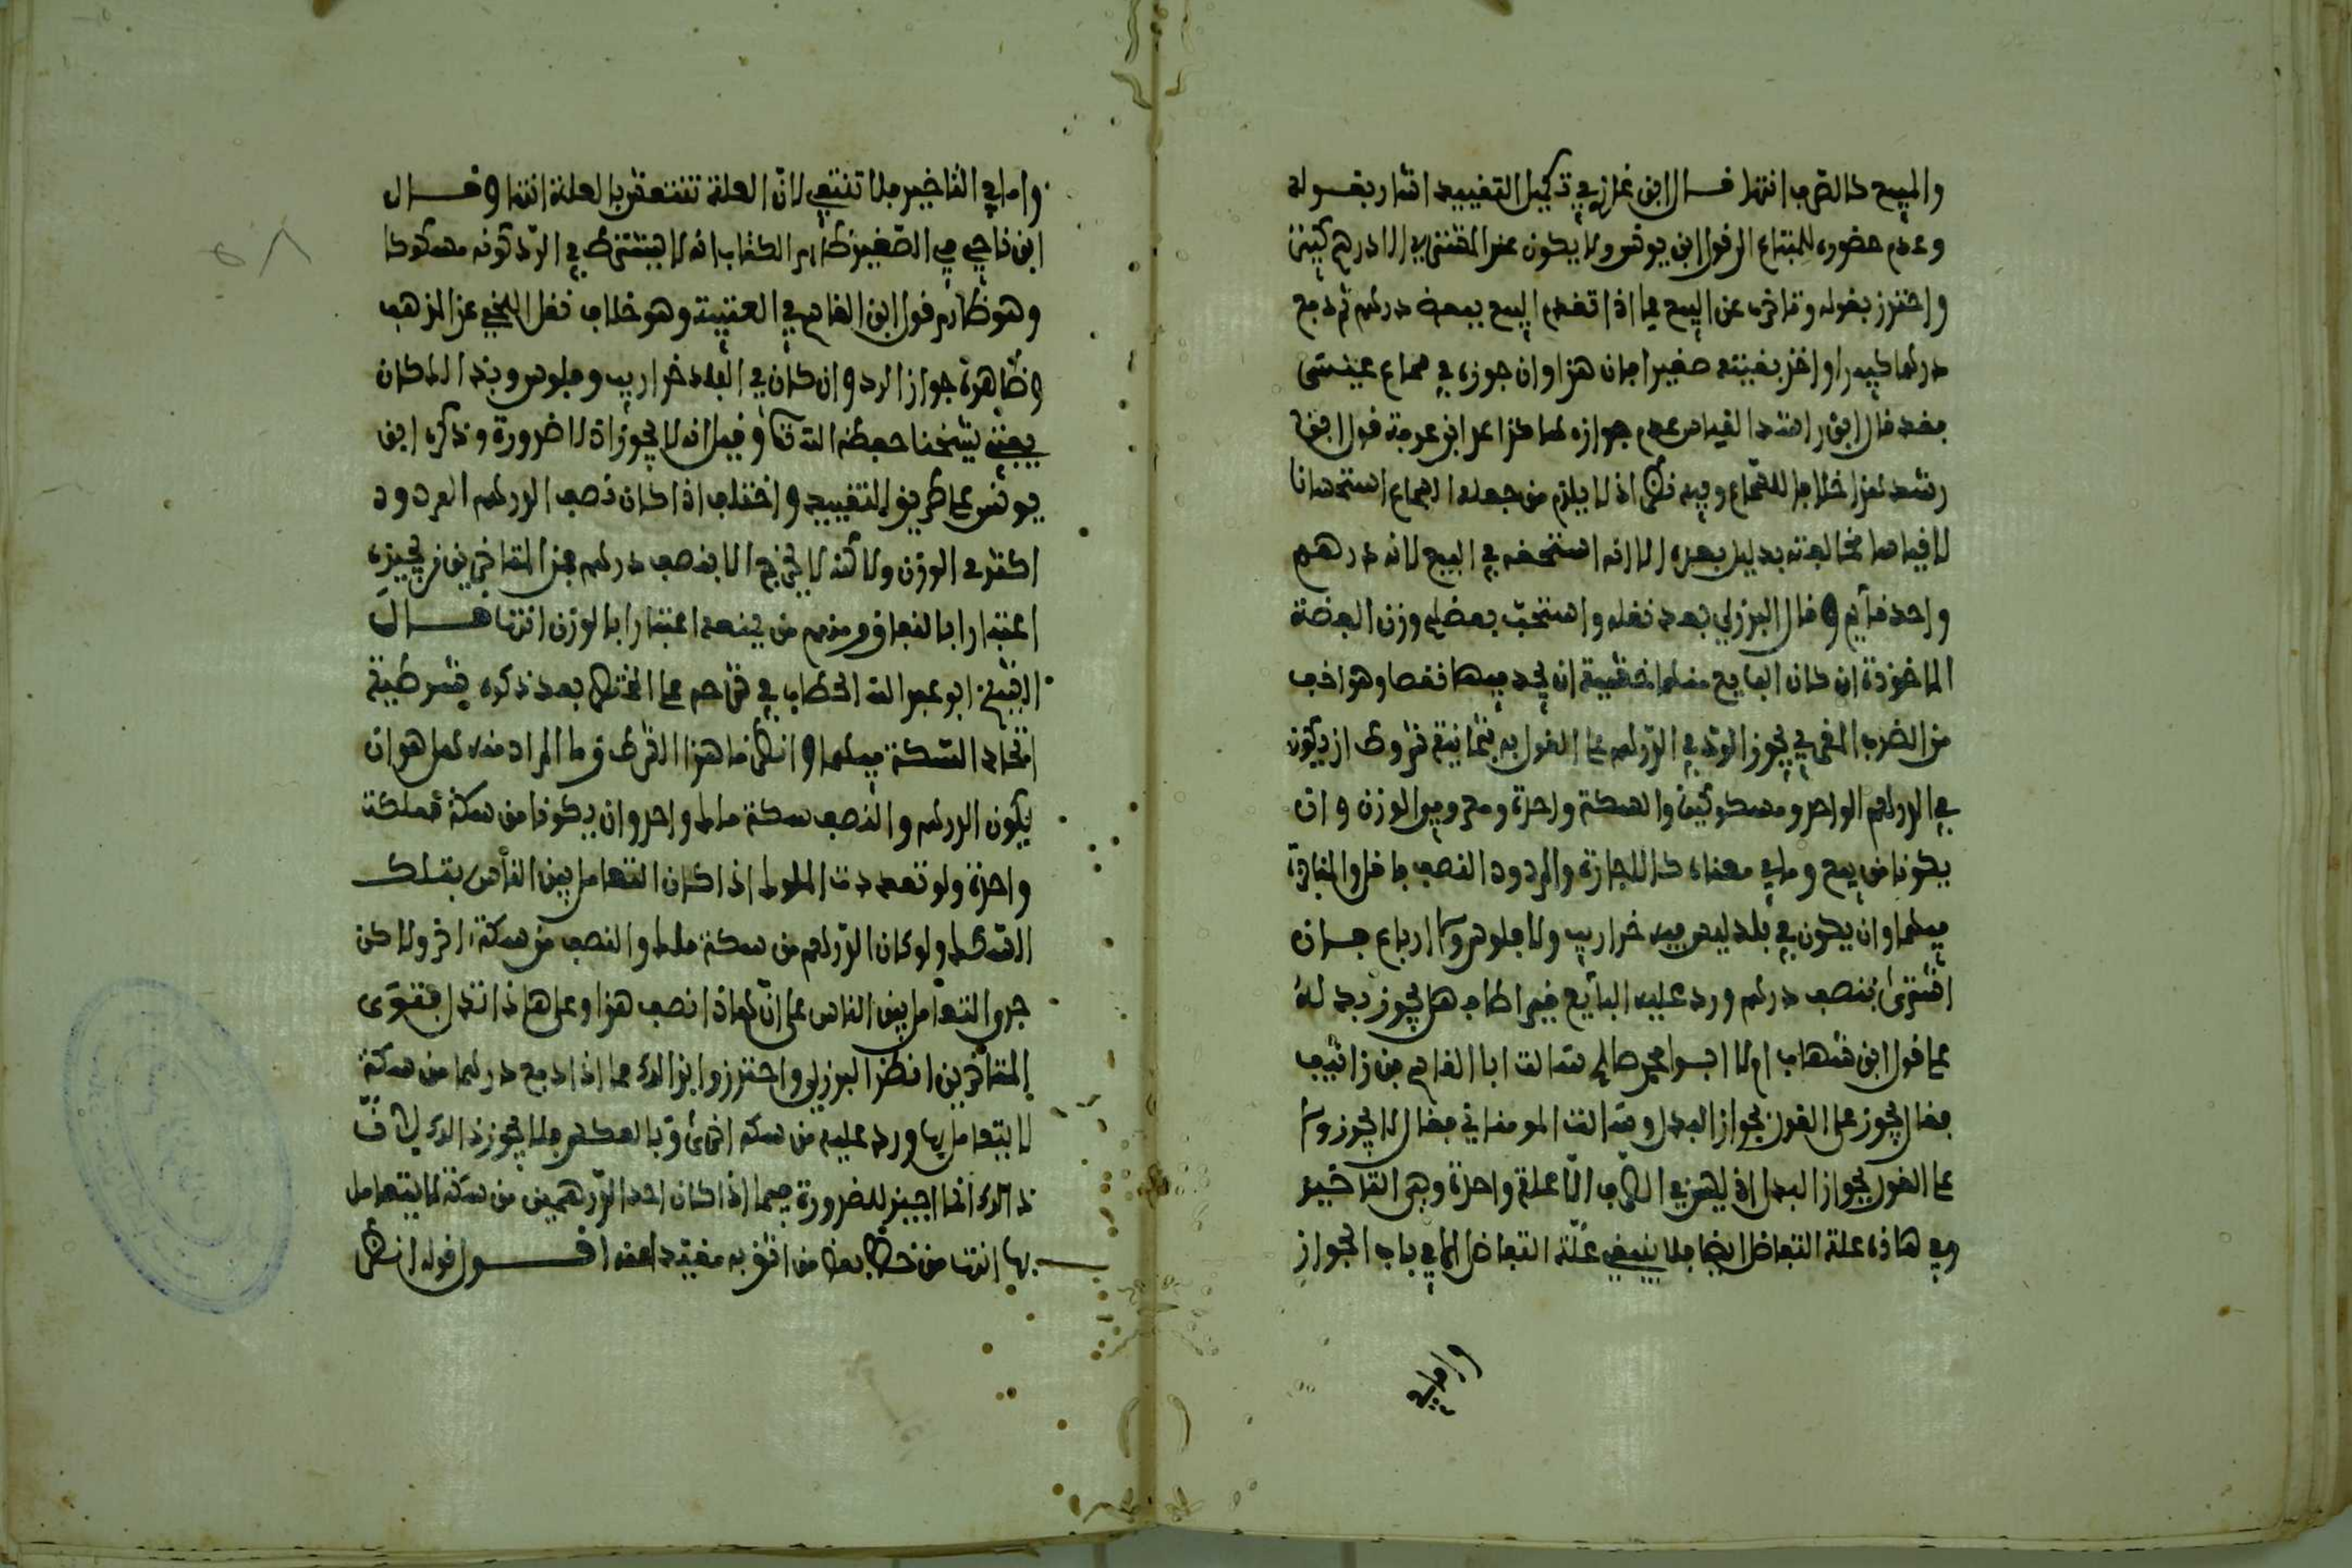 والمبيع كالصرف انتها قال ابن غازي في تكميل التقييد اشار بقوله
وعدم حضوره للمبتاع الى قول ابن يونس ولا يكون عند المشتري الا درهم
واحترز بقوله وتاخر عن البيع مما اذا تقدم البيع ببعض درهم ثم دفع
درهما كبيرا واخذ بقيته صغيرا فان هذا وان جوزه في سماع عيسى
فقد قال ابن رشد القياس عدم جوازه
رشد هذا خلاف للسماع وفيه نظر اذ لا يلزم من جعله السماع استحسانا
لا قياسا مخالفته بدليل بعده الا انه استحسنه في البيع لانه درهم
واحد قايم وقال البرزلي بعد نقله واستحب بعضهم وزن الفضة
الماخوذة ان كان البايع منهما خشية ان يجد فيها نقصا وهو اخف
من الضرب القفصي يجوز الرد في الدرهم على القول به بثمانية شروط ان يكون
في الدرهم الواحد ومسكوكين والسكة واحدة ومعروفي الوزن وان
يكونا في بيع وما في معناه كالاجارة والمردود النصف فاقل والمناجزة
فيهما وان يكون في بلد ليس فيه خراريب ولا فلوس ولا ارباع فان
اشترى بنصف درهم ورد عليه البايع فيراطا هل يجوز بدله
على قول ابن شهاب ام لا ابوا محمد صالح سالت ابا القاسم بن زانيف
فقال يجوز على القول بجواز البدل وسالت المومناني فقال لا يجوز ولا
على القول بجواز البدل اذ ليس في الصرف الا علة واحدة وهي التاخير
وفي هاذه علة التفاضل ايضا فلا ينبغي علة التفاضل اما في باب الجواز
واما في
واما في التاخير فلا تنتفي لان العلة تنتقض بالعلة انتها وقال
ابن ناجي في الصغير ظاهر الكتاب انه لا يشترط في الرد كونه مسكوكا
وهو ظاهر قول ابن القاسم في العتبية وهو خلاف نقل اللخمي عن المذهب
وظاهره جواز الرد وان كان في البلد خراريب وفلوس وبذالك كان
يفتي شيخنا حفظه الله تعا وقيل انه لا يجوز اذ لا ضرورة وذكره ابن
يونس على طريق التقييد واختلف اذا كان نصف الدرهم المردود
اكثر في الوزن ولاكنه لا يخرج الا بنصف درهم فمن المتاخرين من يجيزه
اعتبارا بالنفاق ومنهم من يمنعه اعتبارا بالوزن انتها قال
الشيخ ابو عبد الله الحطاب في شرحه على المختصر بعد ذكره شرطية
اتحاد السكة فيهما وانظر ما هذا الشرط وما المراد منه هل هو ان
يكون الدرهم والنصف سكة ملك واحد وان يكونا من سكة مملكة
واحدة ولو تعددت الملوك اذا كان التعامل بين الناس بتلك
السكك ولو كان الدرهم من سكة ملك والنصف من سكة اخر ولاكن
جرى التعامل بين الناس على ان هاذا نصف هذا وعلى هاذا تدل فتوى
المتاخرين انظر البرزلي واحترز وابذالك مما اذا دفع درهما من سكة
لا يتعامل بها ورد عليه من سكة اخرى وبالعكس فلا يجوز ذالك لان
ذالك انما اجيز للضرورة فيما اذا كان احد الدرهمين من سكة لا يتعامل
بها انتها من خط بعض من اثق به مقيدا عنه اقول قوله انظر